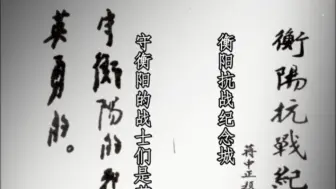 衡陽抗戰紀
蔣中正
衡阳抗战纪念城
守衡阳的战士们是
守衡陽的
英勇的。